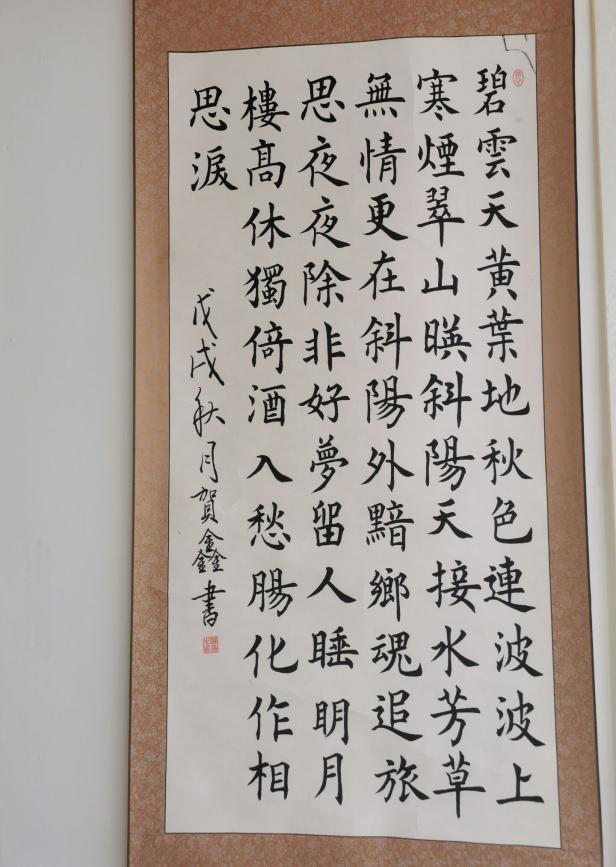 碧雲天黃葉地秋色連波波上
寒煙翠山暎斜陽天接水芳草
無情更在斜陽外黯鄉魂追旅
思夜夜除非好夢留人睡明月
樓高休獨倚酒入愁腸化作相
思淚
戊戌秋月賀鑫書